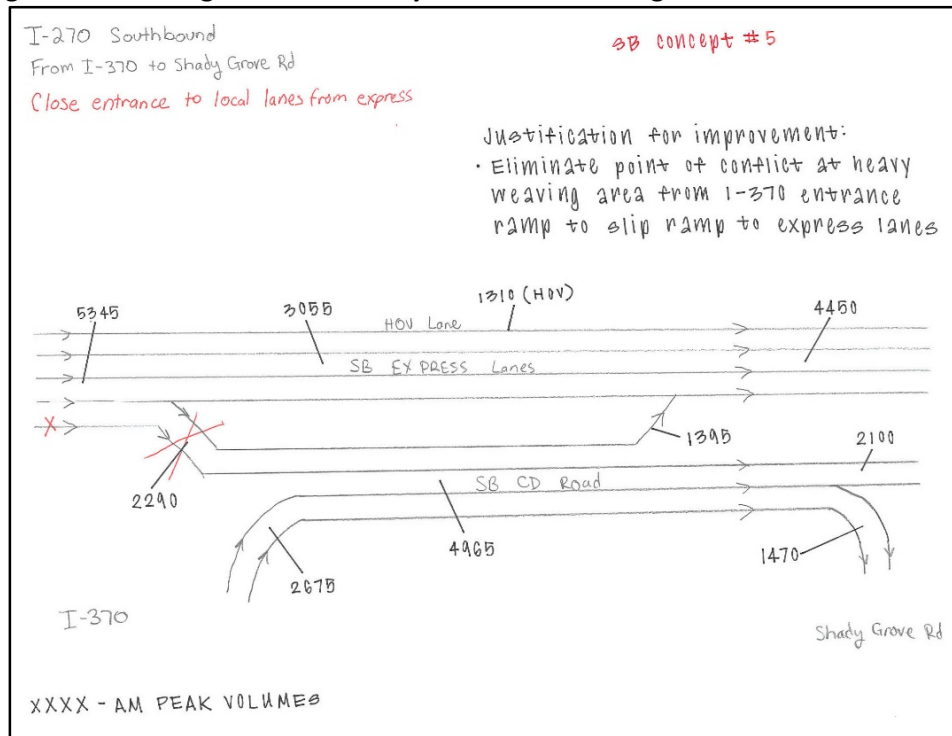 I-270 Southbound
From I-370 to Shady Grove Rd
Close entrance to local lanes from express
SB CONCEPT #5
Justification for improvement:
· Eliminate point of conflict at heavy
weaving area from I-370 entrance
ramp to slip ramp to express lanes
5345
3055
1310 (HOV)
4450
HOV Lane
SB EXPRESS Lanes
X
2290
1395
2100
SB CD Road
2675
4965
1470
I-370
Shady Grove Rd
XXXX - AM PEAK VOLUMES